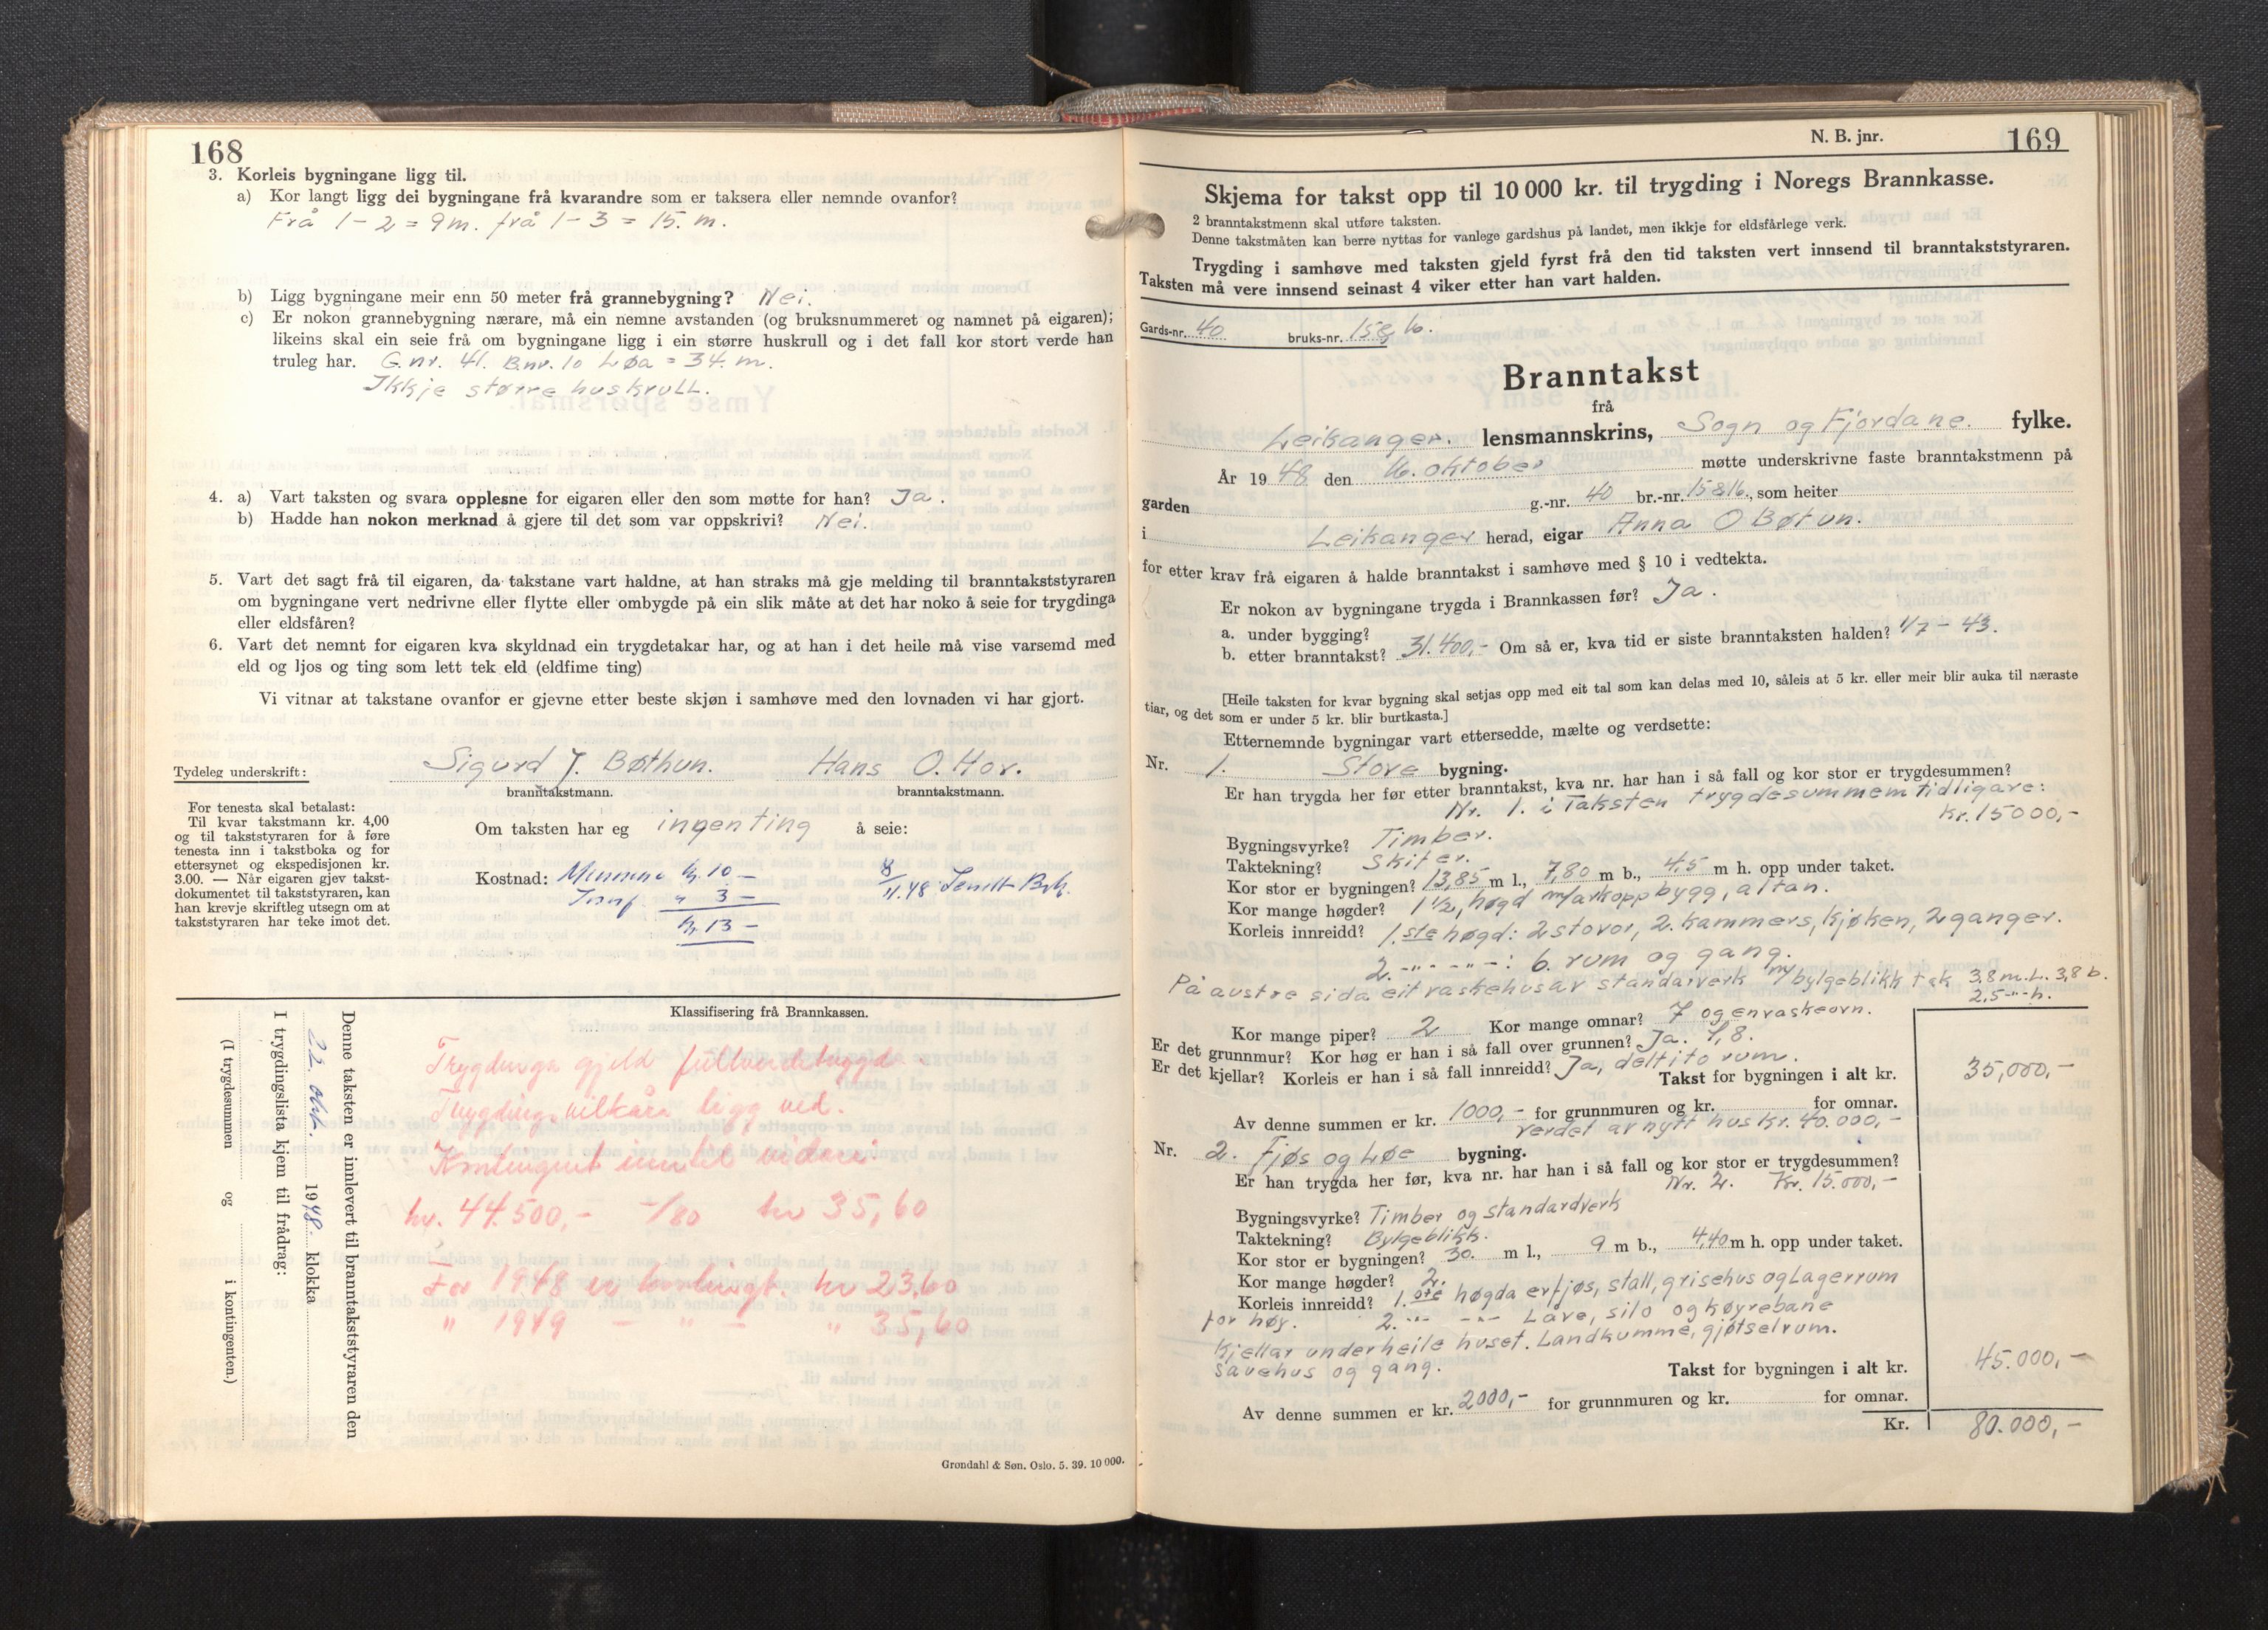 168
3. Korleis bygningane ligg til.
a) Kor langt ligg dei bygningane frå kvarandre som er taksera eller nemnde ovanfor?
Frå 1 - 2 = 9 m. frå 1 - 3 = 15. m.
b) Ligg bygningane meir enn 50 meter frå grannebygning? Nei.
c) Er nokon grannebygning nærare, må ein nemne avstanden (og bruksnummeret og namnet på eigaren);
likeins skal ein seie frå om bygningane ligg i ein større huskrull og i det fall kor stort verde han
truleg har. G.nr. 41. B.nr. 10 Løa = 34. m.
Ikkje større huskrull.
4. a) Vart taksten og svara opplesne for eigaren eller den som møtte for han? Ja.
b) Hadde han nokon merknad å gjere til det som var oppskrivi? Nei.
5. Vart det sagt frå til eigaren, da takstane vart haldne, at han straks må gje melding til branntakststyraren
om bygningane vert nedrivne eller flytte eller ombygde på ein slik måte at det har noko å seie for trygdinga
eller eldsfåren?
6. Vart det nemnt for eigaren kva skyldnad ein trygdetakar har, og at han i det heile må vise varsemd med
eld og ljos og ting som lett tek eld (eldfime ting)
Vi vitnar at takstane ovanfor er gjevne etter beste skjøn i samhøve med den lovnaden vi har gjort.
Tydeleg underskrift: Sigurd J. Bøthun. Hans O. Hov.
branntakstmann. branntakstmann.
For tenesta skal betalast:
Til kvar takstmann kr. 4,00
og til takststyraren for å føre
tenesta inn i takstboka og for
ettersynet og ekspedisjonen kr.
3.00. — Når eigaren gjev takst-
dokumentet til takststyraren, kan
han krevje skriftleg utsegn om at
takststyraren har teke imot det.
Om taksten har eg ingenting å seie:
Kostnad: Mennene kr. 10 –
" 3 –
kr. 13 –
8/11.48. Sendt Brk.
Klassifisering frå Brannkassen.
Trygdinga gjeld fullverdetrygd.
Trygdingsvilkåra ligg ved.
Kontingent inntil vidare:
kr. 44.500,- -/80 kr 35,60
For 1948 er kontingt. kr 23,60
" 1949 – " – " 35,60
Denne taksten er innlevert til branntakststyraren den
22. okt. 1948. klokka
I trygdingslista kjem til frådrag:
(I trygdesummen og i kontingenten.)
Grøndahl & Søn. Oslo. 5. 39. 10 000.
N. B. jnr. 169
Skjema for takst opp til 10 000 kr. til trygding i Noregs Brannkasse.
2 branntakstmenn skal utføre taksten.
Denne takstmåten kan berre nyttas for vanlege gardshus på landet, men ikkje for eldsfårlege verk.
Trygding i samhøve med taksten gjeld fyrst frå den tid taksten vert innsend til branntakststyraren.
Taksten må vere innsend seinast 4 viker etter han vart halden.
Gards-nr. 40 bruks-nr. 15 & 16.
Branntakst
frå
Leikanger. lensmannskrins, Sogn og Fjordane. fylke.
År 1948 den 16. oktober møtte underskrivne faste branntakstmenn på
garden g.-nr. 40 br.-nr. 15 & 16., som heiter
i Leikanger herad, eigar Anna O Bøtun.
for etter krav frå eigaren å halde branntakst i samhøve med § 10 i vedtekta.
Er nokon av bygningane trygda i Brannkassen før? Ja.
a. under bygging?
b. etter branntakst? 31.400,- Om så er, kva tid er siste branntaksten halden? 1/7 - 43.
[Heile taksten for kvar bygning skal setjas opp med eit tal som kan delas med 10, såleis at 5 kr. eller meir blir auka til næraste
tiar, og det som er under 5 kr. blir burtkasta.]
Etternemnde bygningar vart ettersedde, mælte og verdsette:
Nr. 1. Stove bygning.
Er han trygda her før etter branntakst, kva nr. har han i så fall og kor stor er trygdesummen?
Nr. 1. i Taksten trygdesummem tidligare:
Kr. 15000,-
Bygningsvyrke? Timber.
Taktekning? Skifer.
Kor stor er bygningen? 13,85 m l., 7,80 m b., 4,5 m h. opp under taket.
Kor mange høgder? 1 1/2, høgd m/arkoppbygg, altan.
Korleis innreidd? 1.ste høgd: 2 stovor, 2. kammers, kjøken, 2 ganger.
2. -"- -"-: 6. rum og gang.
På austre sida eit vaskehus av standarverk m/ bylgeblikk tak 3,8 m. L. 3,8 b.
2,5 -"- h.
Kor mange piper? 2 Kor mange omnar? 7 og en vaskeovn.
Er det grunnmur? Kor høg er han i så fall over grunnen? Ja. 1,8.
Er det kjellar? Korleis er han i så fall innreidd? Ja, delt i to rum.
Takst for bygningen i alt kr. 35,000,-
Av denne summen er kr. 1000,- for grunnmuren og kr. for omnar.
Verdet av nytt hus Kr. 40.000,-
Nr. 2. Fjøs og Løe bygning.
Er han trygda her før, kva nr. har han i så fall og kor stor er trygdesummen?
Nr. 2. Kr. 15.000,-
Bygningsvyrke? Timber og standardverk
Taktekning? Bylgeblikk.
Kor stor er bygningen? 30. m l., 9 m b., 4,40 m h. opp under taket.
Kor mange høgder? 2.
Korleis innreidd? 1.ste høgda er fjøs, stall, grisehus og Lagerrum
for høy. 2. -"- -"- Låve, silo og køyrebane
Kjellar under heile huset. Landkumme, gjøtselrum.
Sauehus og gang.
Takst for bygningen i alt kr. 45.000,-
Av denne summen er kr. 2000,- for grunnmuren og kr. for omnar.
Kr. 80.000,-